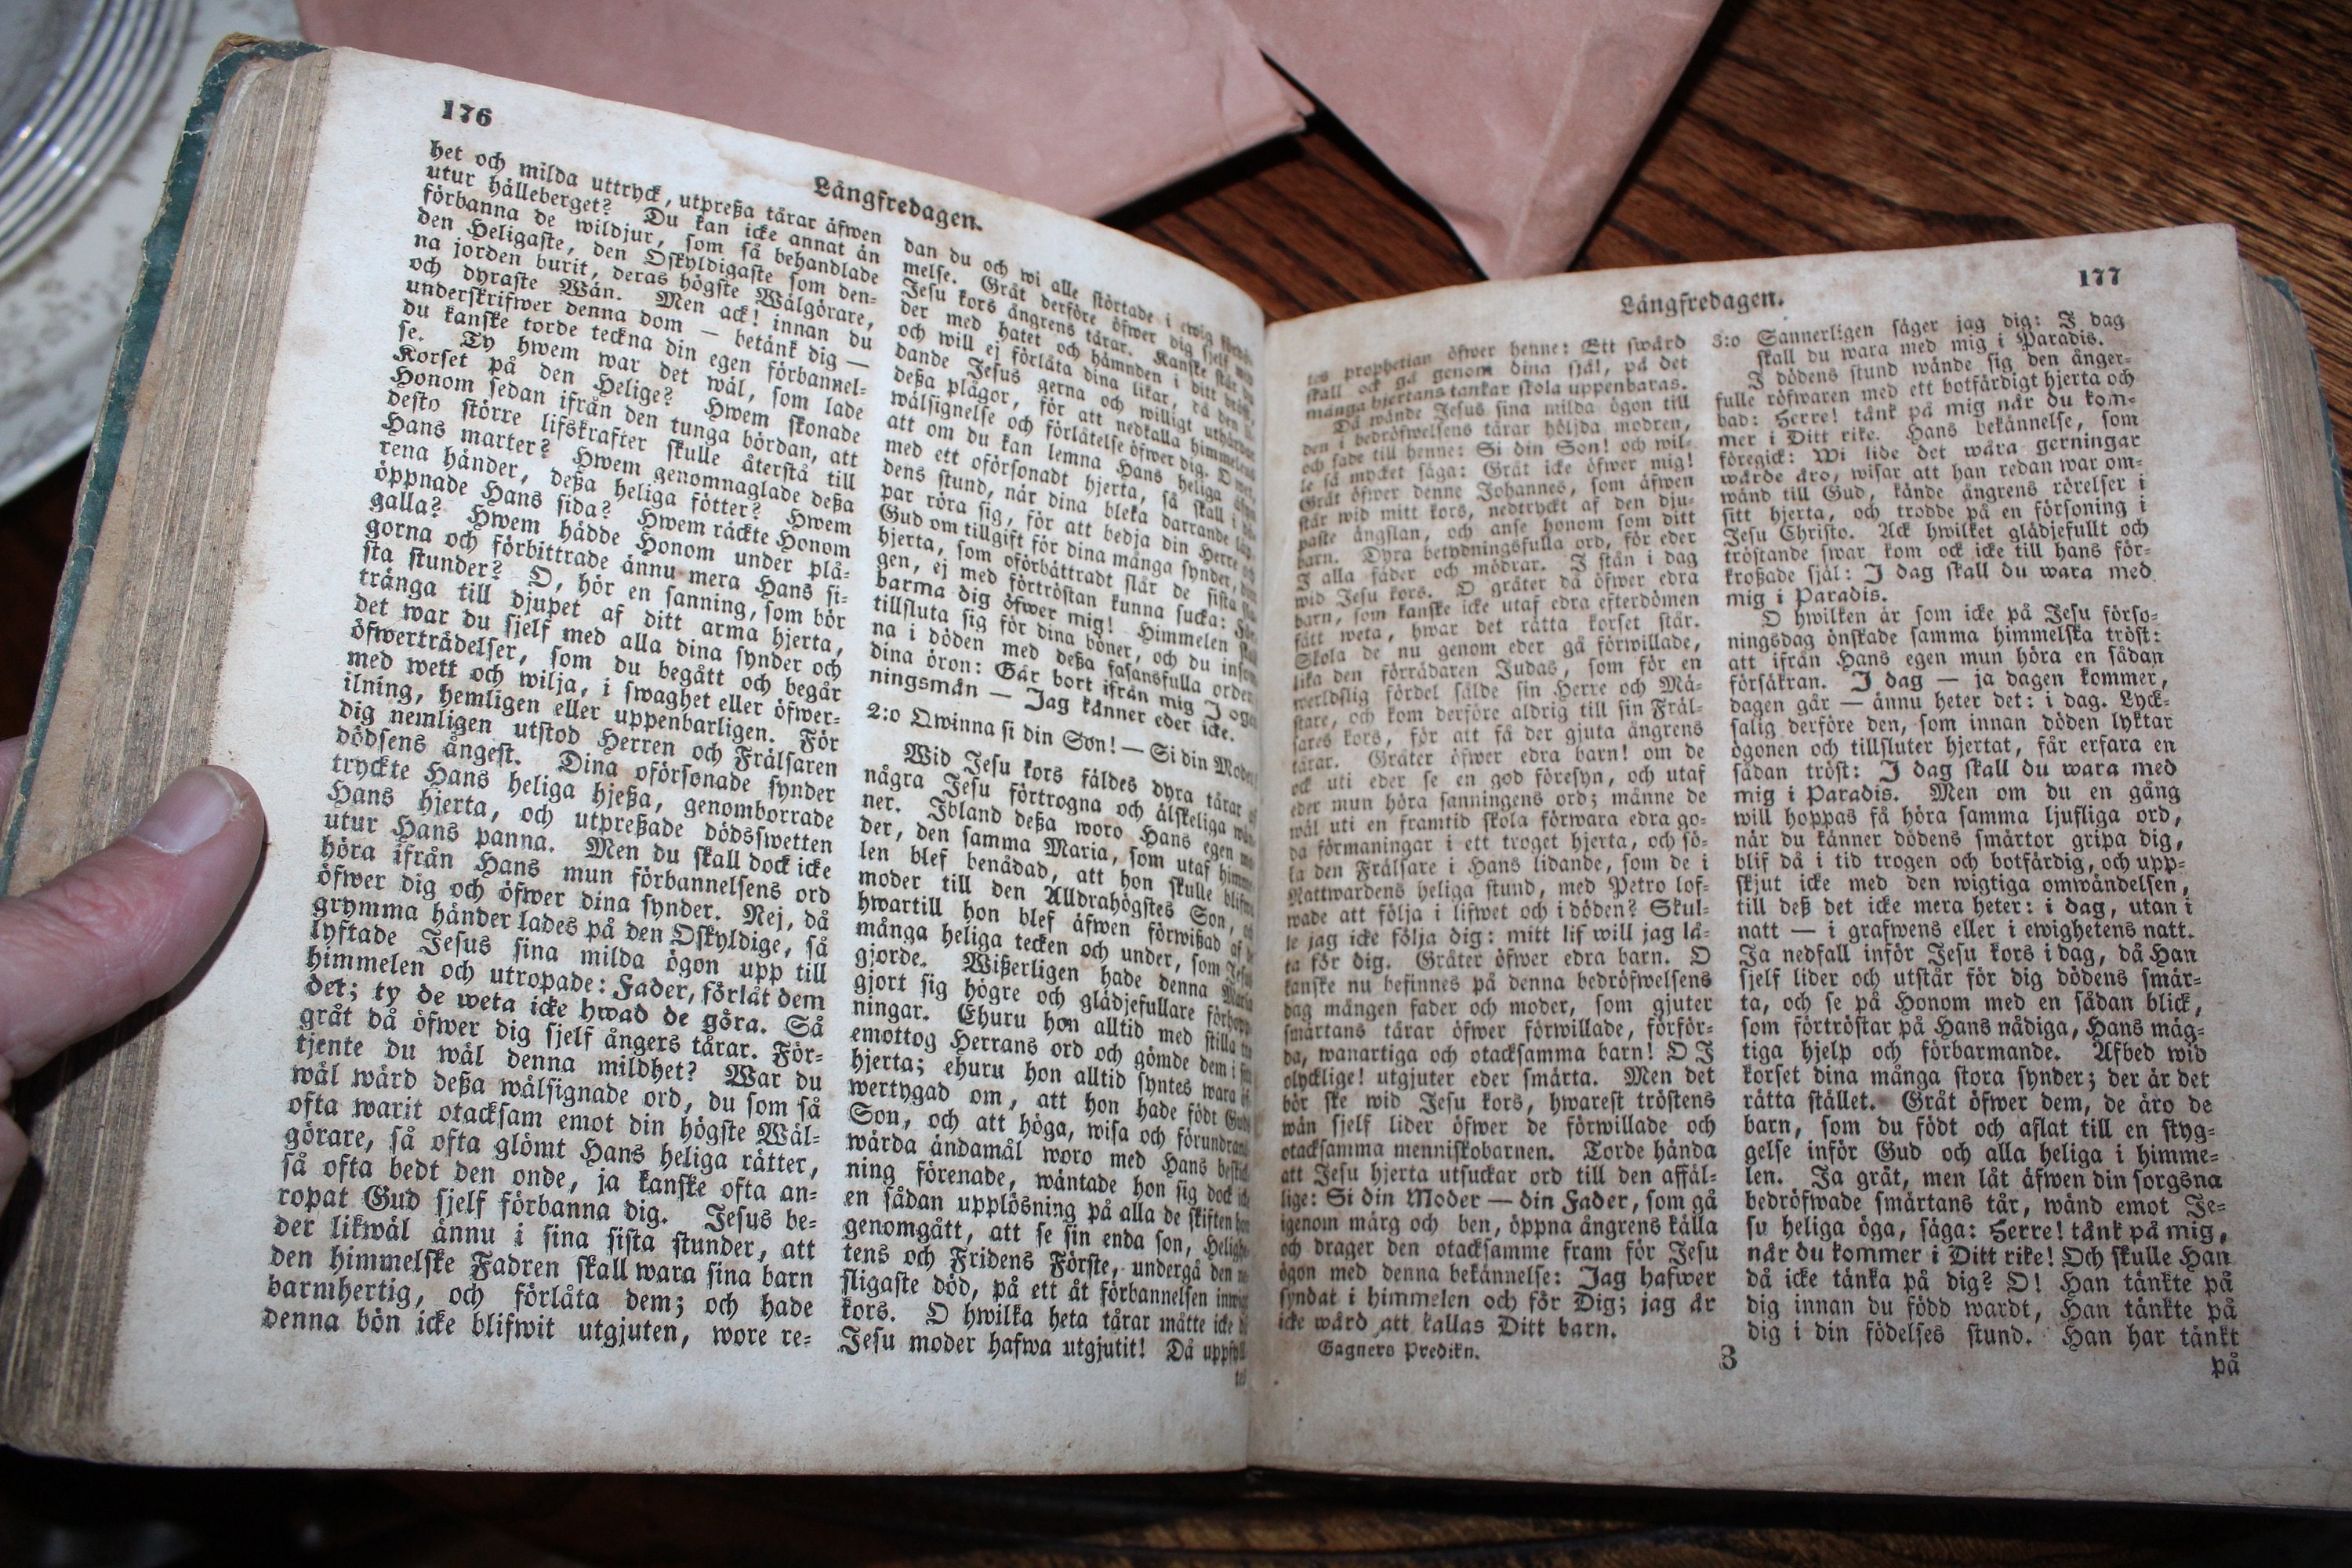 176
Långfredagen.
het och milda uttryck, utpreßa tårar äfwen
utur hälleberget? Du kan icke annat än
förbanna de wildjur, som så behandlade
den Heligaste, den Oskyldigaste som den-
na jorden burit, deras högste Wälgörare,
och dyraste Wän. Men ack! innan du
underskrifwer denna dom — betänk dig —
du kanske torde teckna din egen förbannel-
se. Ty hwem war det wäl, som lade
Korset på den Helige? Hwem skonade
Honom sedan ifrån den tunga bördan, att
desto större lifskrafter skulle återstå till
Hans marter? Hwem genomnaglade deßa
rena händer, deßa heliga fötter? Hwem
öppnade Hans sida? Hwem räckte Honom
galla? Hwem hädde Honom under plå-
gorna och förbittrade ännu mera Hans si-
sta stunder? O, hör en sanning, som bör
tränga till djupet af ditt arma hjerta,
det war du sjelf med alla dina synder och
öfwerträdelser, som du begått och begår
med wett och wilja, i swaghet eller öfwer-
ilning, hemligen eller uppenbarligen. För
dig nemligen utstod Herren och Frälsaren
dödsens ångest. Dina oförsonade synder
tryckte Hans heliga hjeßa, genomborrade
Hans hjerta, och utpreßade dödsswetten
utur Hans panna. Men du skall dock icke
höra ifrån Hans mun förbannelsens ord
öfwer dig och öfwer dina synder. Nej, då
grymma händer lades på den Oskyldige, så
lyftade Jesus sina milda ögon upp till
himmelen och utropade: Fader, förlåt dem
det; ty de weta icke hwad de göra. Så
gråt då öfwer dig sjelf ångers tårar. För-
tjente du wäl denna mildhet? War du
wäl wärd deßa wälsignade ord, du som så
ofta warit otacksam emot din högste Wäl-
görare, så ofta glömt Hans heliga rätter,
så ofta bedt den onde, ja kanske ofta an-
ropat Gud sjelf förbanna dig. Jesus be-
der likwäl ännu i sina sista stunder, att
den himmelske Fadren skall wara sina barn
barmhertig, och förlåta dem; och hade
denna bön icke blifwit utgjuten, wore re-
dan du och wi alle störtade i ewig
melse. Gråt derföre öfwer dig sjelf wid
Jesu kors ångrens tårar. Kanske står du
der med hatet och hämnden i ditt bröst,
och will ej förlåta dina likar, då den li-
dande Jesus gerna och willigt uthärdar
deßa plågor, för att nedkalla himmelens
wälsignelse och förlåtelse öfwer dig. O wet,
att om du kan lemna Hans heliga
med ett oförsonadt hjerta, så skall i
dens stund, när dina bleka darrande läp-
par röra sig, för att bedja din Herre och
Gud om tillgift för dina många synder, ditt
hjerta, som oförbättradt slår de sista sla-
gen, ej med förtröstan kunna sucka:
barma dig öfwer mig! Himmelen skall
tillsluta sig för dina böner, och du
na i döden med deßa fasansfulla orden
dina öron: Går bort ifrån mig J oga
ningsmän — Jag känner eder icke.
2:o Qwinna si din Son! — Si din Moder!
Wid Jesu kors fäldes dyra tårar af
några Jesu förtrogna och älskeliga wän-
ner. Ibland deßa woro Hans egen mo-
der, den samma Maria, som utaf himme-
len blef benådad, att hon skulle blifwa
moder till den Alldrahögstes Son,
hwartill hon blef äfwen förwißad af de
många heliga tecken och under, som Jesus
gjorde. Wißerligen hade denna Maria
gjort sig högre och glädjefullare förhopp-
ningar. Ehuru hon alltid med stilla
emottog Herrans ord och gömde dem i sitt
hjerta; ehuru hon alltid syntes wara öf-
wertygad om, att hon hade födt Guds
Son, och att höga, wisa och förundrans-
wärda ändamål woro med Hans beskick-
ning förenade, wäntade hon sig dock icke
en sådan upplösning på alla de skiften hon
genomgått, att se sin enda son, Helighe-
tens och Fridens Förste, undergå den
sligaste död, på ett åt förbannelsen inwigdt
kors. O hwilka heta tårar måtte icke
Jesu moder hafwa utgjutit! Då uppfyll-
tes
177
Långfredagen.
tes prophetian öfwer henne: Ett swärd
skall ock gå genom dina själ, på det
många hjertans tankar skola uppenbaras.
Då wände Jesus sina milda ögon till
den i bedröfwelsens tårar höljda modren,
och sade till henne: Si din Son! och wil-
le så mycket säga: Gråt icke öfwer mig!
Gråt öfwer denne Johannes, som äfwen
står wid mitt kors, nedtryckt af den dju-
paste ängslan, och anse honom som ditt
barn. Dyra betydningsfulla ord, för eder
J alla fäder och mödrar. J stån i dag
wid Jesu kors. O gråter då öfwer edra
barn, som kanske icke utaf edra efterdömen
fått weta, hwar det rätta korset står.
Skola de nu genom eder gå förwillade,
lika den förrädaren Judas, som för en
werldslig fördel sålde sin Herre och Mä-
stare, och kom derföre aldrig till sin Fräl-
sares kors, för att få der gjuta ångrens
tårar. Gråter öfwer edra barn! om de
ock uti eder se en god föresyn, och utaf
eder mun höra sanningens ord; månne de
wäl uti en framtid skola förwara edra go-
da förmaningar i ett troget hjerta, och sö-
la den Frälsare i Hans lidande, som de i
Nattwardens heliga stund, med Petro lof-
wade att följa i lifwet och i döden? Skul-
le jag icke följa dig: mitt lif will jag lå-
ta för dig. Gråter öfwer edra barn. O
kanske nu befinnes på denna bedröfwelsens
dag mången fader och moder, som gjuter
smärtans tårar öfwer förwillade, förför-
da, wanartiga och otacksamma barn! O J
olycklige! utgjuter eder smärta. Men det
bör ske wid Jesu kors, hwarest tröstens
wän sjelf lider öfwer de förwillade och
otacksamma menniskobarnen. Torde hända
att Jesu hjerta utsuckar ord till den affäl-
lige: Si din Moder — din Fader, som gå
igenom märg och ben, öppna ångrens källa
och drager den otacksamme fram för Jesu
ögon med denna bekännelse: Jag hafwer
syndat i himmelen och för Dig; jag är
icke wärd att kallas Ditt barn.
Gagners Predikn.
3
3:o Sannerligen säger jag dig: I dag
skall du wara med mig i Paradis.
I dödens stund wände sig den ånger-
fulle röfwaren med ett botfärdigt hjerta och
bad: Herre! tänk på mig när du kom-
mer i Ditt rike. Hans bekännelse, som
föregick: Wi lide det wåra gerningar
wärde äro, wisar att han redan war om-
wänd till Gud, kände ångrens rörelser i
sitt hjerta, och trodde på en försoning i
Jesu Christo. Ack hwilket glädjefullt och
tröstande swar kom ock icke till hans för-
kroßade själ: I dag skall du wara med
mig i Paradis.
O hwilken är som icke på Jesu förso-
ningsdag önskade samma himmelska tröst:
att ifrån Hans egen mun höra en sådan
försäkran. I dag — ja dagen kommer,
dagen går — ännu heter det: i dag. Lyck-
salig derföre den, som innan döden lyktar
ögonen och tillsluter hjertat, får erfara en
sådan tröst: I dag skall du wara med
mig i Paradis. Men om du en gång
will hoppas få höra samma ljufliga ord,
när du känner dödens smärtor gripa dig,
blif då i tid trogen och botfärdig, och upp-
skjut icke med den wigtiga omwändelsen,
till deß det icke mera heter: i dag, utan i
natt — i grafwens eller i ewighetens natt.
Ja nedfall inför Jesu kors i dag, då Han
sjelf lider och utstår för dig dödens smär-
ta, och se på Honom med en sådan blick,
som förtröstar på Hans nådiga, Hans mäg-
tiga hjelp och förbarmande. Afbed wid
korset dina många stora synder; der är det
rätta stället. Gråt öfwer dem, de äro de
barn, som du födt och aflat till en styg-
gelse inför Gud och alla heliga i himme-
len. Ja gråt, men låt äfwen din sorgsna
bedröfwade smärtans tår, wänd emot Je-
su heliga öga, säga: Herre! tänk på mig,
när du kommer i Ditt rike! Och skulle Han
då icke tänka på dig? O! Han tänkte på
dig innan du född wardt, Han tänkte på
dig i din födelses stund. Han har tänkt
på